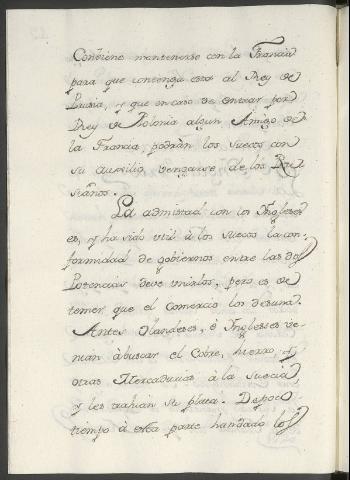 Conviene mantenerse con la Francia
para que contenga esta al Rey de
Prusia, y que en caso de entrar por
Rey de Polonia algun Amigo de
la Francia, podrán los Suecos con
su auxilio, vengarse de los Ru
sianos.
La admistad con los Ynglese
es, y ha sido util à los Suecos la con-
formidad de goviernos entre las dos
Potencias deve unirlos, pero es de
temer que el Comercio los desuna.
Antes Olandeses, è Ynglesses ve-
nian àbuscar el Cobre, hierro, y
otras Mercaducias à la Suecia,
y les trahian su plata. De poco
tiempo à esta parte handado los